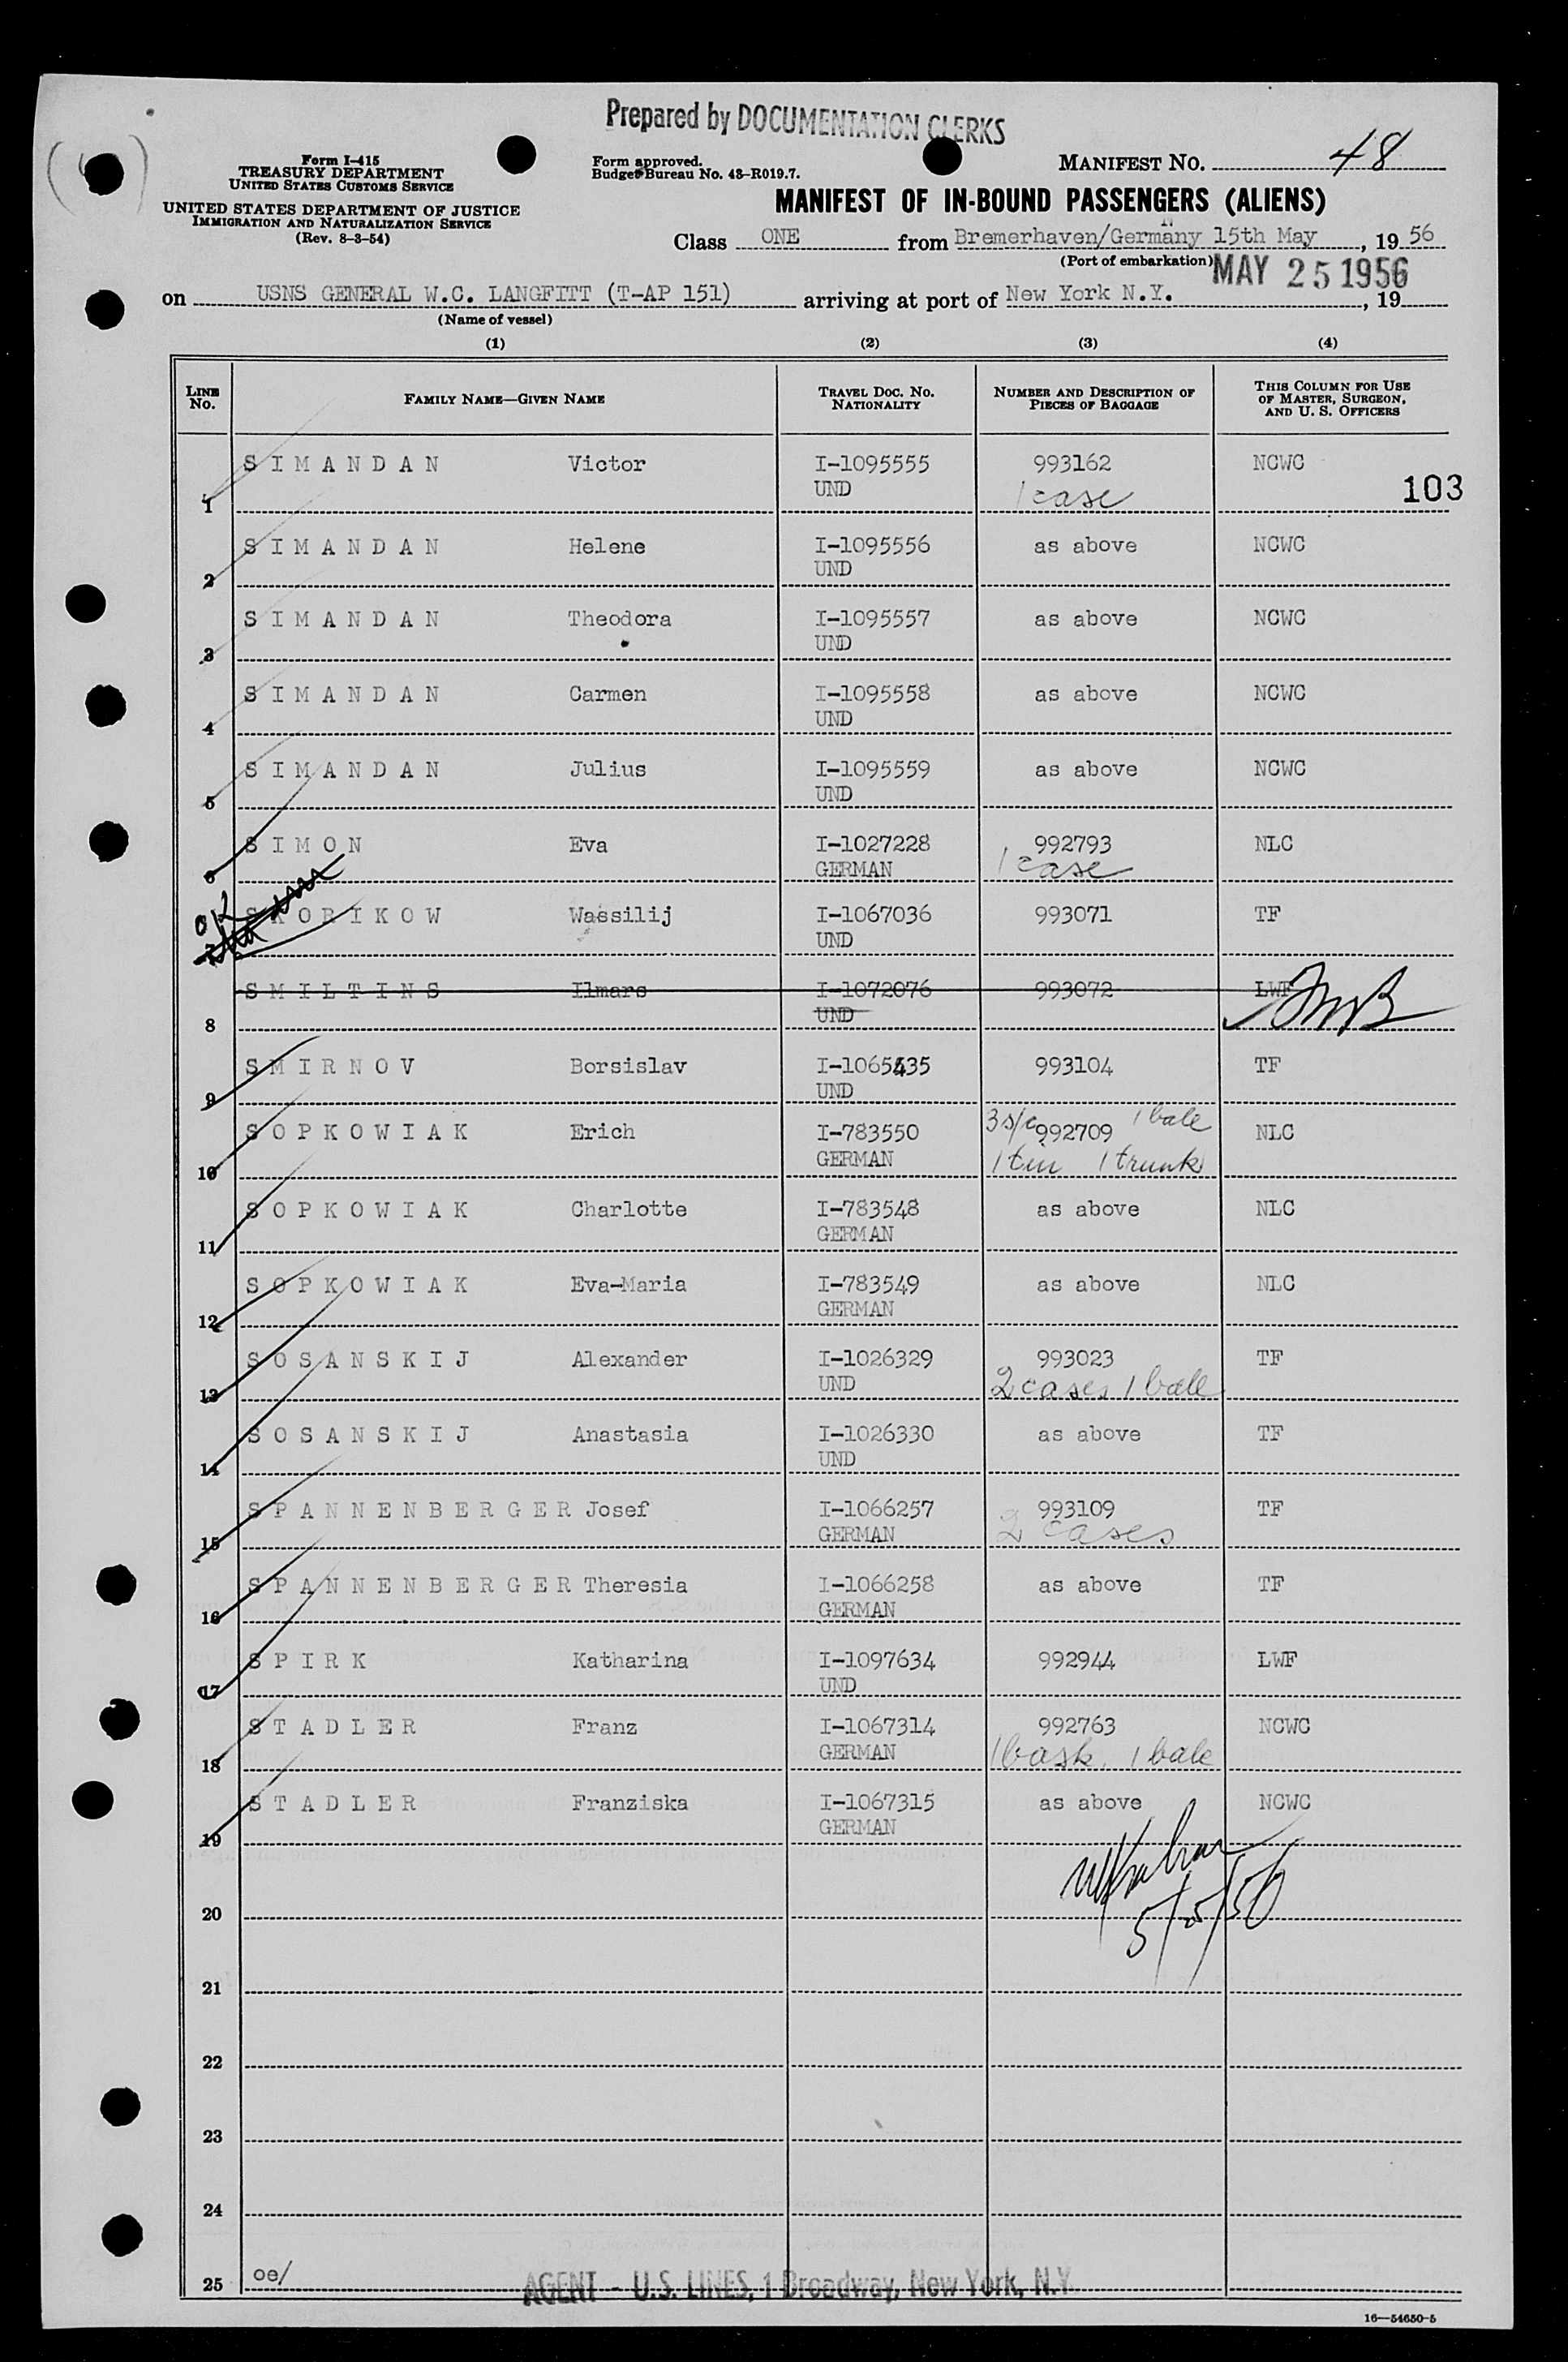 Prepared by DOCUMENTATION CLERKS
Form I-415
TREASURY DEPARTMENT
UNITED STATES CUSTOMS SERVICE
UNITED STATES DEPARTMENT OF JUSTICE
IMMIGRATION AND NATURALIZATION SERVICE
(Rev. 8-3-54)
Form approved.
Budget Bureau No. 43-R019.7.
MANIFEST NO. 48
MANIFEST OF IN-BOUND PASSENGERS (ALIENS)
Class ONE from Bremerhaven/Germany 15th May, 19 56
(Port of embarkation)
MAY 25 1956
on USNS GENERAL W.C. LANGFITT (T-AP 151) arriving at port of New York N.Y., 19
(Name of vessel)
(1) (2) (3) (4)
LINE NO. FAMILY NAME—GIVEN NAME TRAVEL DOC. NO. NATIONALITY NUMBER AND DESCRIPTION OF PIECES OF BAGGAGE THIS COLUMN FOR USE OF MASTER, SURGEON, AND U. S. OFFICERS
S I M A N D A N Victor I-1095555 993162 NCWC
1 UND 1 case 103
S I M A N D A N Helene I-1095556 as above NCWC
2 UND
S I M A N D A N Theodora I-1095557 as above NCWC
3 UND
S I M A N D A N Carmen I-1095558 as above NCWC
4 UND
S I M A N D A N Julius I-1095559 as above NCWC
5 UND
S I M O N Eva I-1027228 992793 NLC
6 GERMAN 1 case
OK S K O R I K O W Wassilij I-1067036 993071 TF
7 UND
S M I L T I N S Ilmars I-1072076 993072 LWF
8 UND
S M I R N O V Borsislav I-1065435 993104 TF
9 UND
3 s/c 1 bale
S O P K O W I A K Erich I-783550 992709 NLC
10 GERMAN 1 tin 1 trunk
S O P K O W I A K Charlotte I-783548 as above NLC
11 GERMAN
S O P K O W I A K Eva-Maria I-783549 as above NLC
12 GERMAN
S O S A N S K I J Alexander I-1026329 993023 TF
13 UND 2 cases 1 bale
S O S A N S K I J Anastasia I-1026330 as above TF
14 UND
S P A N N E N B E R G E R Josef I-1066257 993109 TF
15 GERMAN 2 cases
S P A N N E N B E R G E R Theresia I-1066258 as above TF
16 GERMAN
S P I R K Katharina I-1097634 992944 LWF
17 UND
S T A D L E R Franz I-1067314 992763 NCWC
18 GERMAN 1 bask. 1 bale
S T A D L E R Franziska I-1067315 as above NCWC
19 GERMAN
20 5/25/56
21
22
23
24
25 oe/
AGENT - U.S. LINES, 1 Broadway, New York, N.Y.
16—54650-5